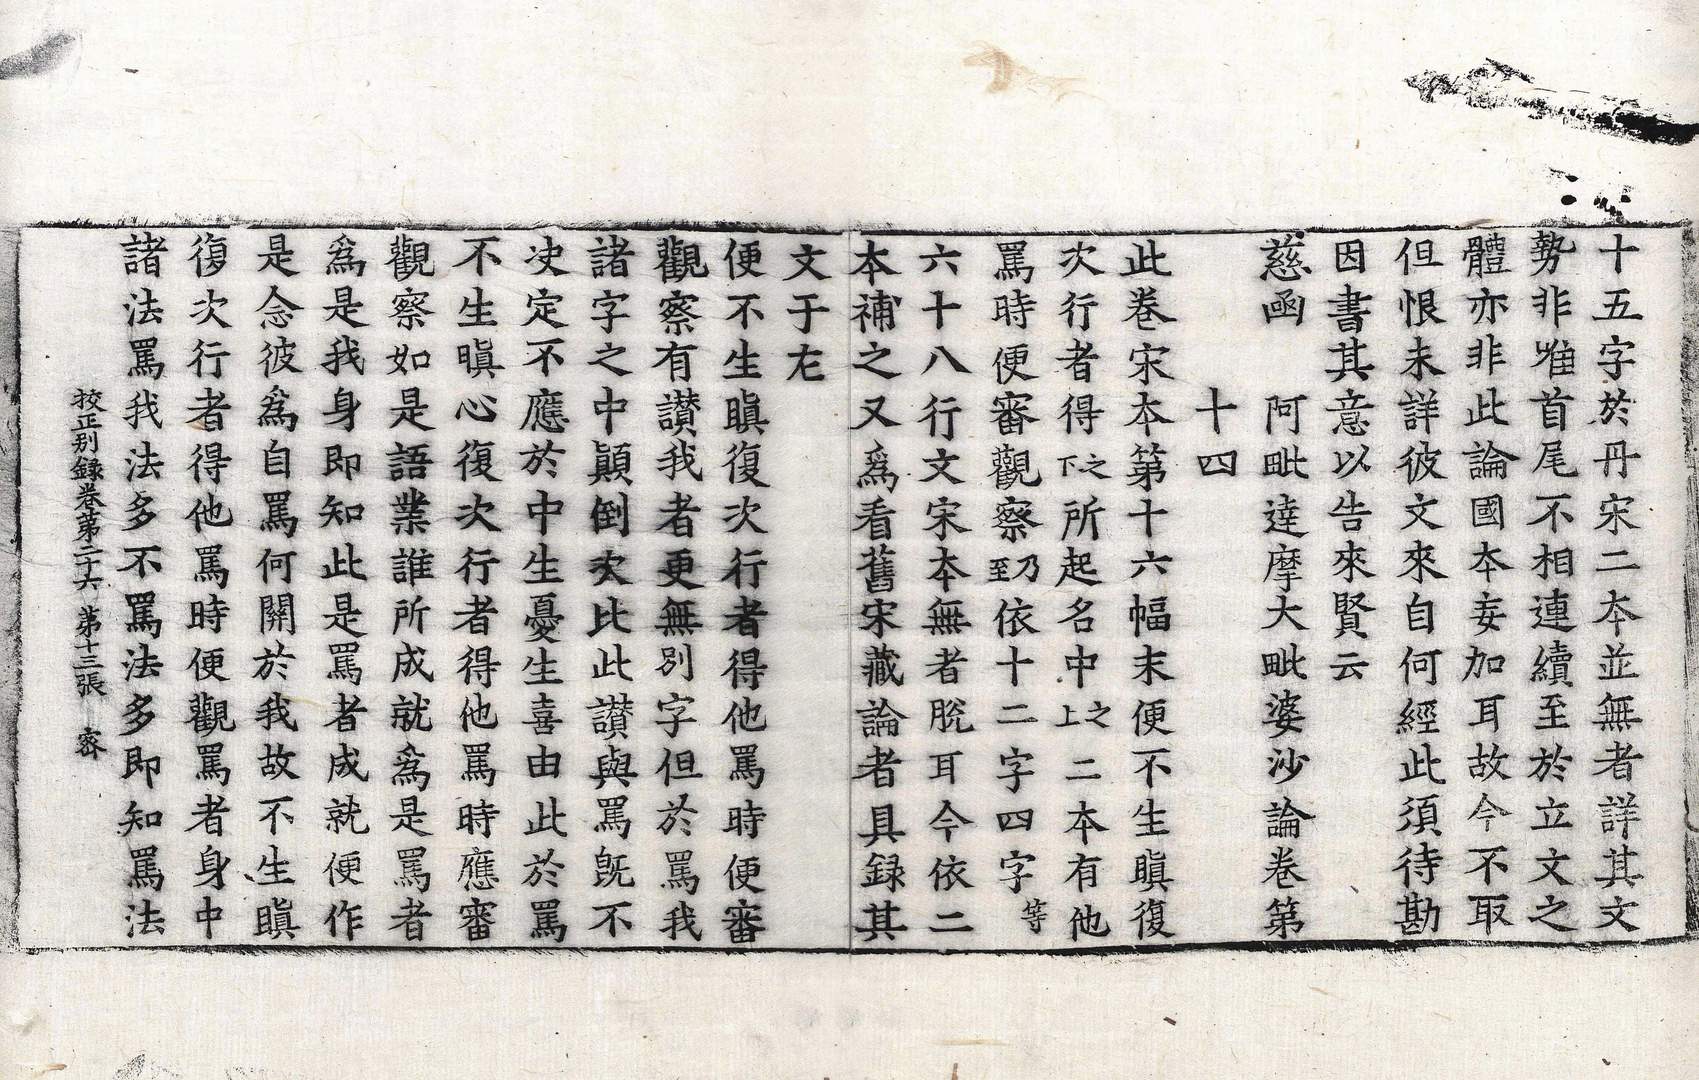 十五字於丹宋二本並無者詳其文
勢非唯首尾不相連續至於立文之
體亦非此論國本妄加耳故今不取
但恨未詳彼文來自何經此須待勘
因書其意以告來賢云
慈函　阿毗達摩大毗婆沙論卷第
十四
此卷宋本第十六幅末便不生瞋復
次行者得之下所起名中之上二本有他
罵時便審觀察乃至依十二字四字等
六十八行文宋本無者脫耳今依二
本補之又爲看舊宋藏論者具録其
文于左
便不生瞋復次行者得他罵時便審
觀察有讃我者更無別字但於罵我
諸字之中顚倒次比此讃與罵旣不
决定不應於中生憂生喜由此於罵
不生瞋心復次行者得他罵時應審
觀察如是語業誰所成就爲是罵者
爲是我身即知此是罵者成就便作
是念彼爲自罵何關於我故不生瞋
復次行者得他罵時便觀罵者身中
諸法罵我法多不罵法多即知罵法
挍正别録卷第二十六　第十三張　密